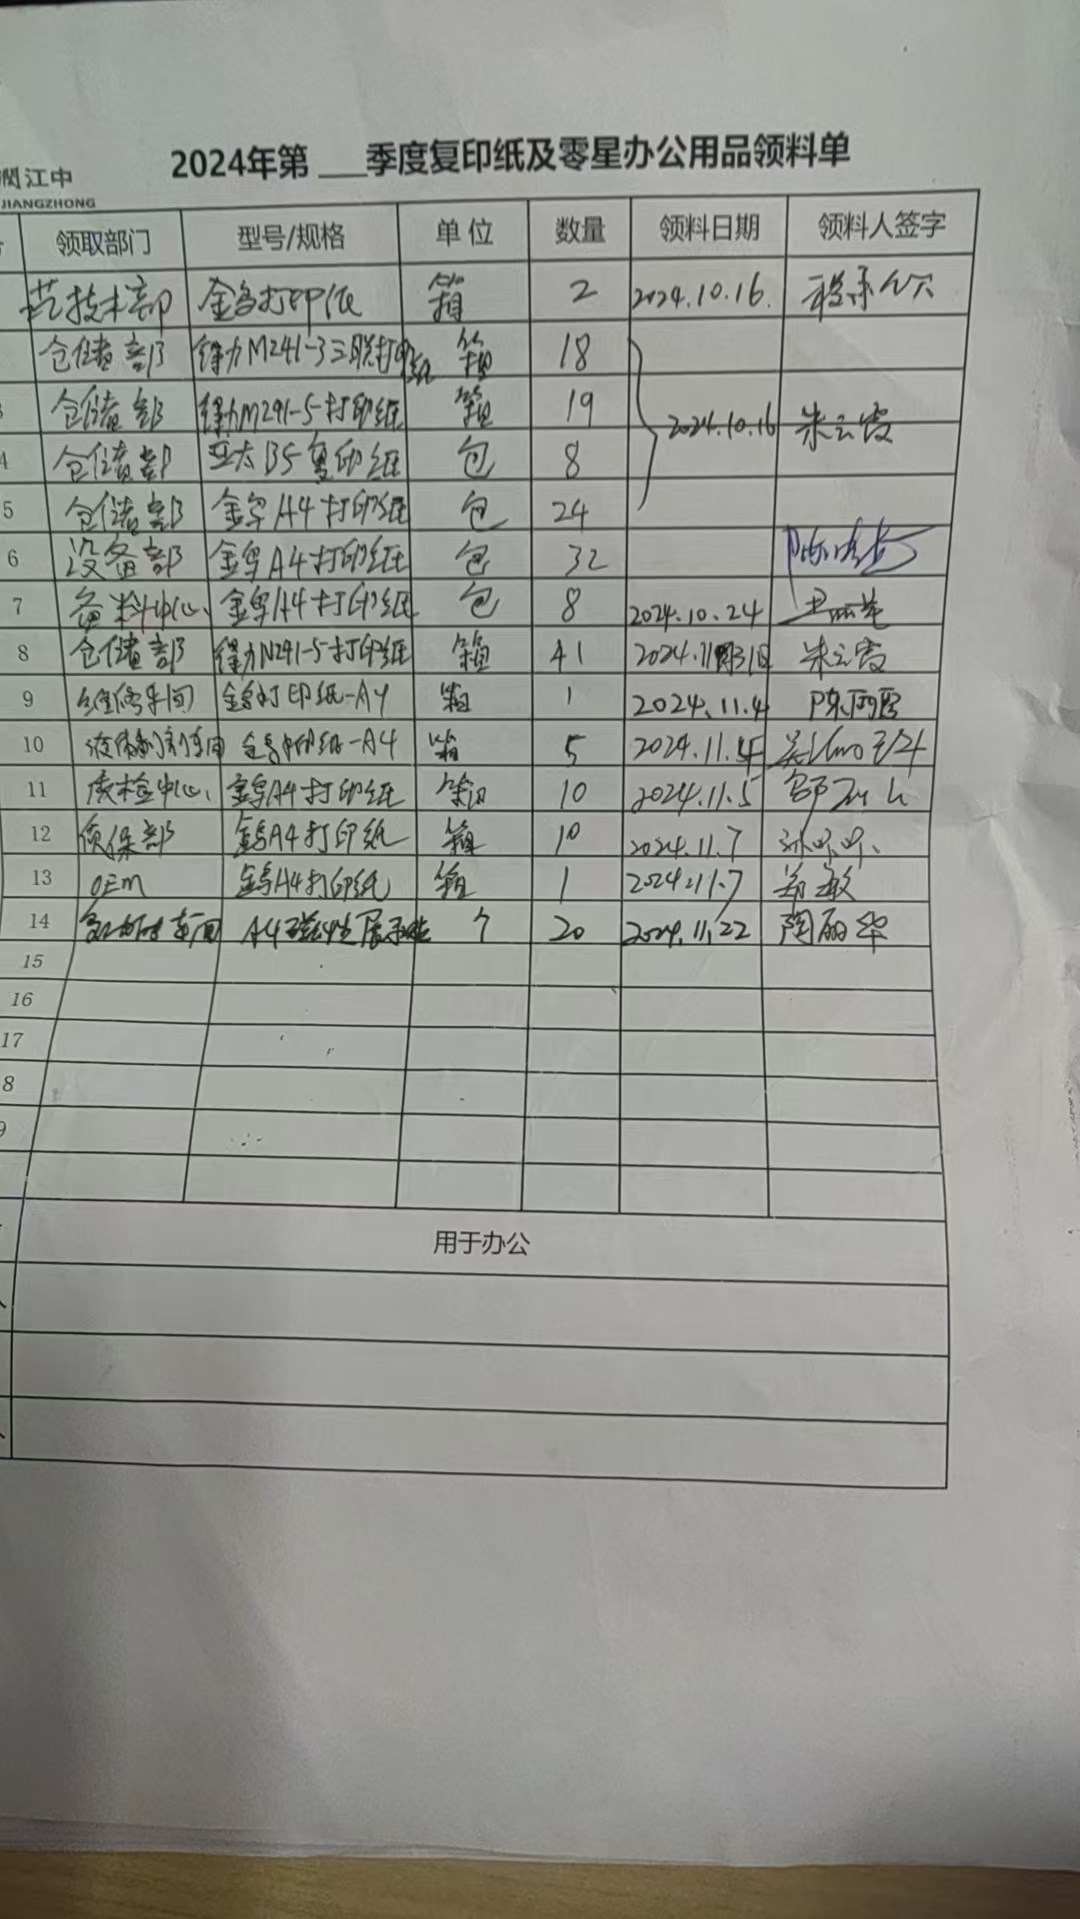 2024年第___季度复印纸及零星办公用品领料单
润江中
JIANGZHONG
领取部门 型号/规格 单位 数量 领料日期 领料人签字
艺技术部 金孚打印纸 箱 2 2024.10.16.
仓储部 得力M241-3三联打印纸 箱 18
3 仓储部 得力M241-5打印纸 箱 19 2024.10.16 朱云霞
4 仓储部 亚太B5复印纸 包 8
5 仓储部 金孚A4打印纸 包 24
6 设备部 金孚A4打印纸 包 32
7 备料中心 金孚A4打印纸 包 8 2024.10.24
8 仓储部 得力M241-5打印纸 箱 41 朱云霞
9 维修车间 金孚打印纸-A4 箱 1 2024.11.4
10 液体制剂车间 金孚打印纸-A4 箱 5 2024.11.4
11 质检中心 金孚A4打印纸 箱 10 2024.11.5
12 质保部 金孚A4打印纸 箱 10 2024.11.7
13 OEM 金孚A4打印纸 箱 1 2024.11.7 郑敏
14 车间 A4磁性展示 个 20 2024.11.22 陶丽华
15
16
17
8
9
用于办公